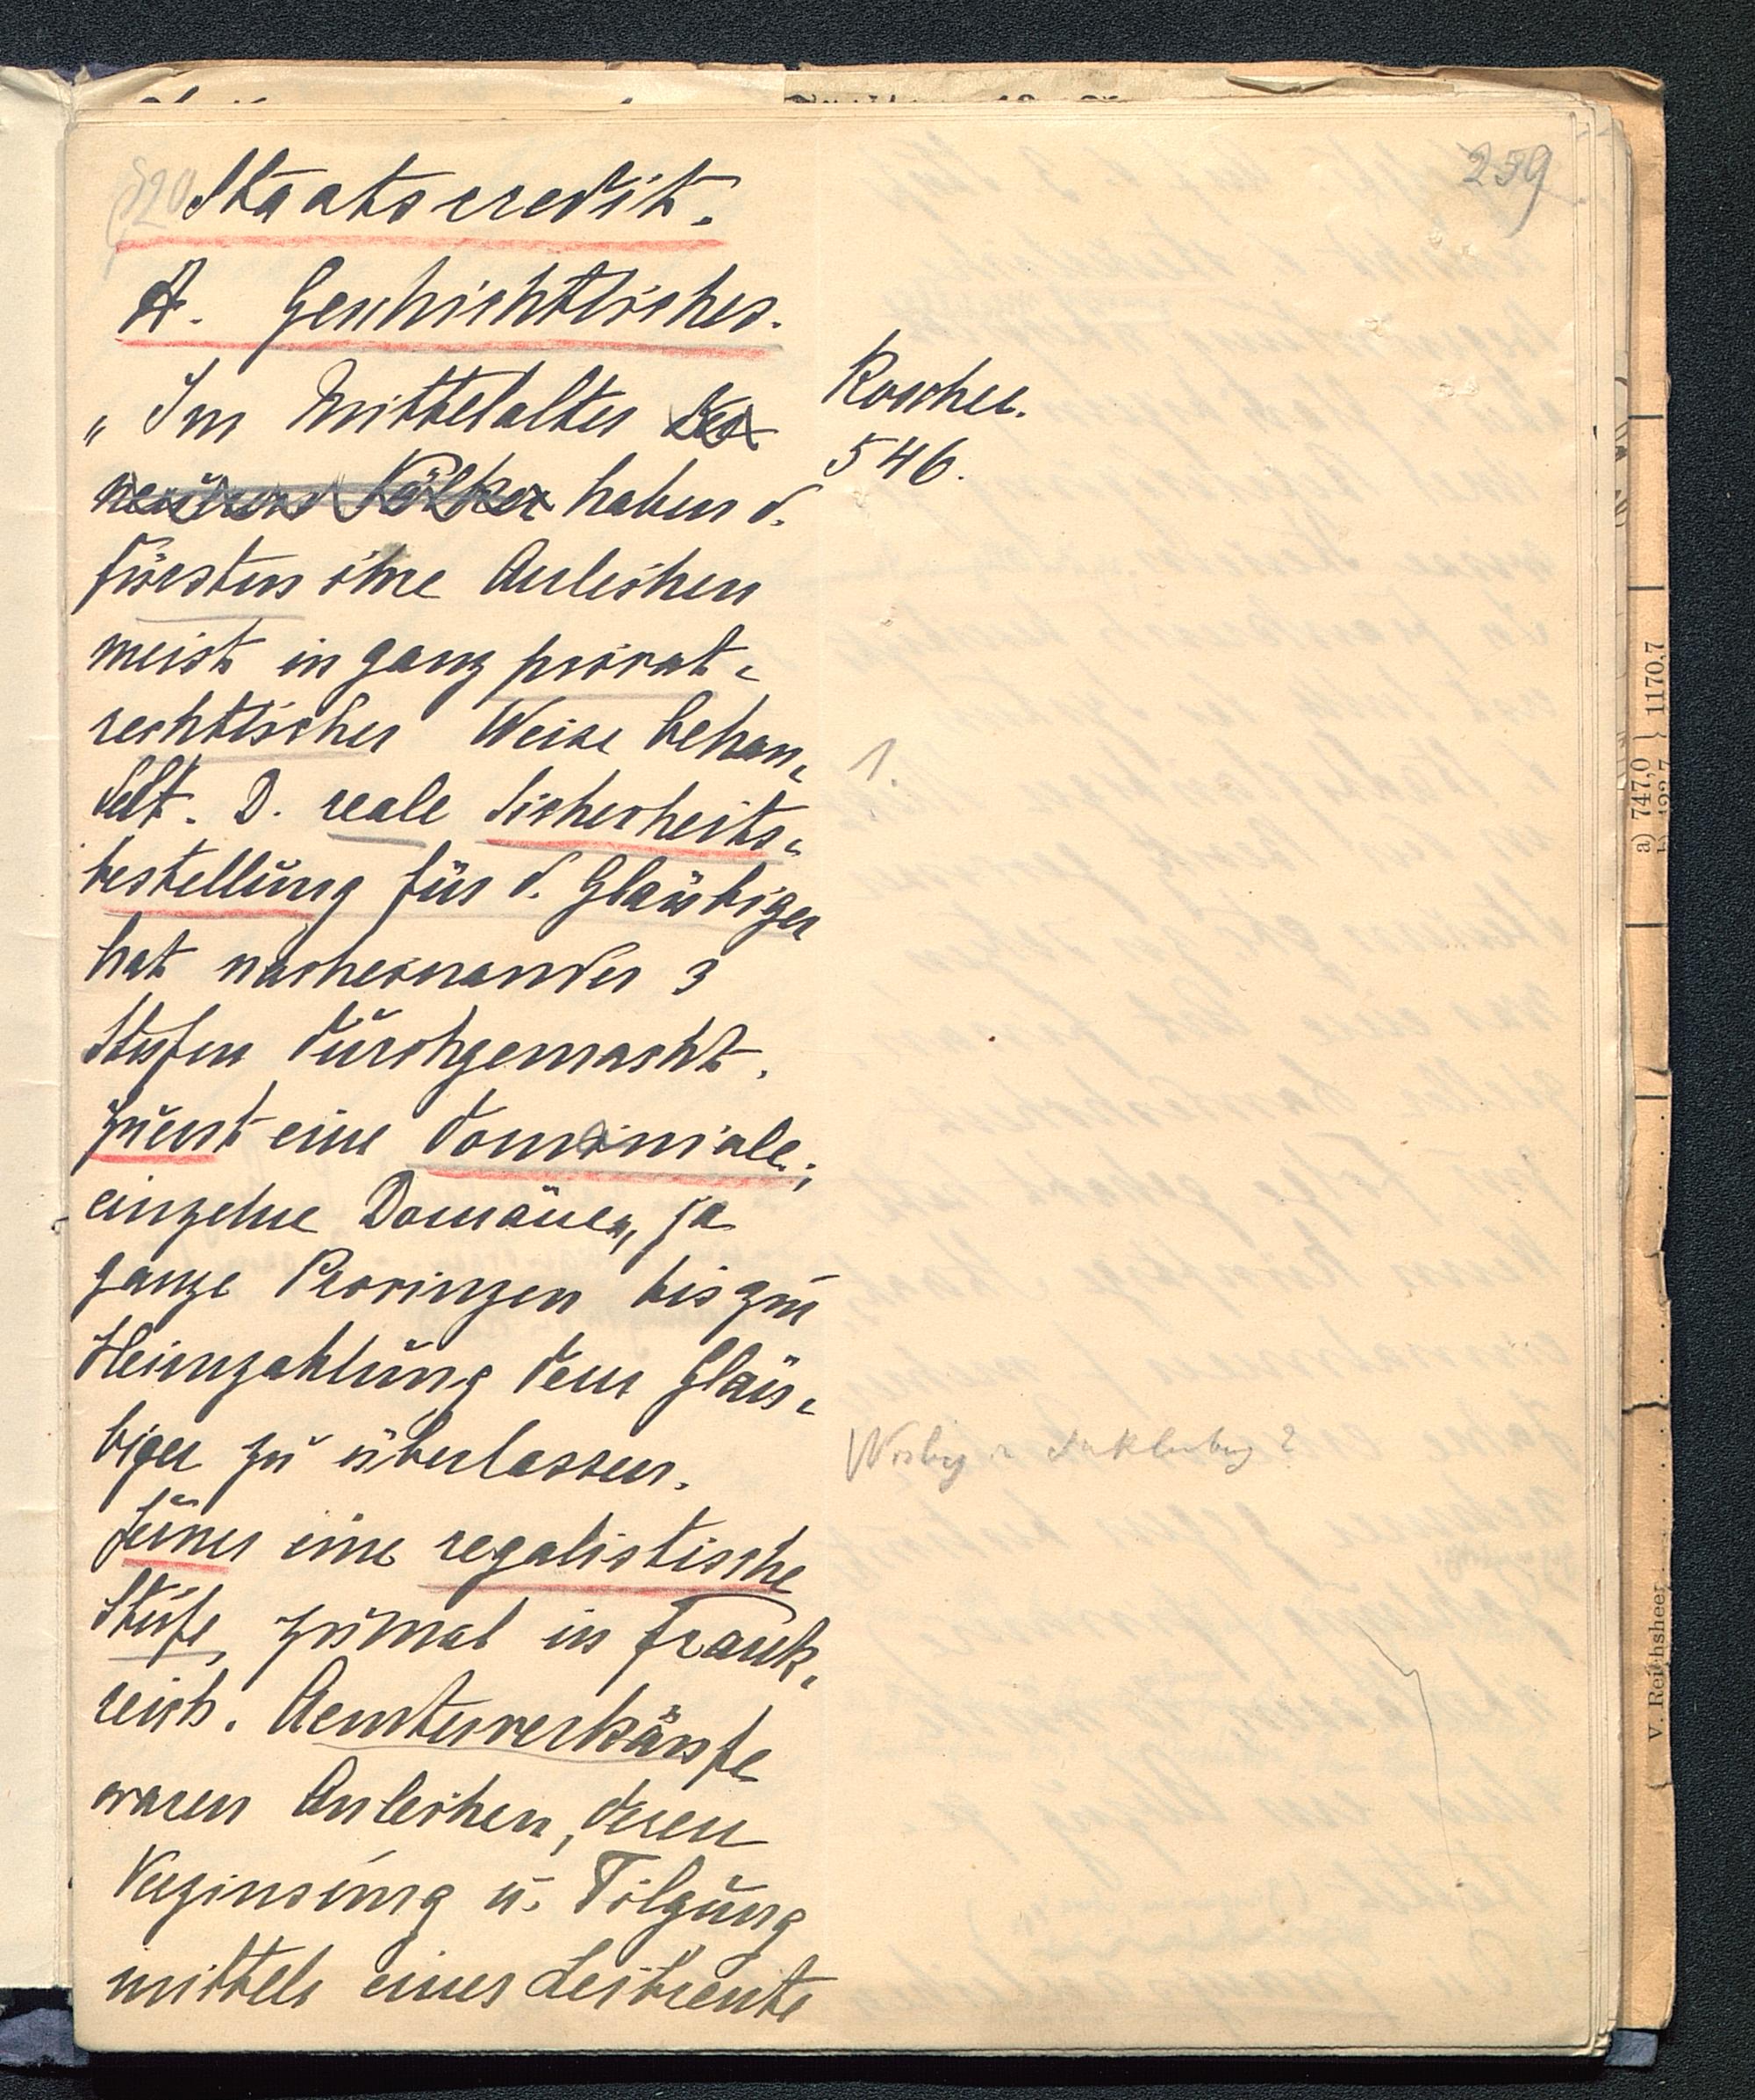 259
§20 Staatscredit.
A. Geschichtliches.
„Im Mittelalter der
neueren Völker haben d.
Fürsten ihre Anleihen
meist in ganz privat-
rechtlicher Weise behan-
delt. D. reale Sicherheits-
bestellung für d. Gläubiger
hat nacheinander 3
Stufen durchgemacht.
Zuerst eine dominiale;
einzelne Domänen, ja
ganze Provinzen bis zur
Heimzahlung dem Gläu-
biger zu überlassen.
Ferner eine regalistische
Stufe, zumal in Frank-
reich. Aemterverkäufe
waren Anleihen, deren
Verzinsung u. Tilgung
mittels einer Leibrente
Roscher.
546.
1.
a) 747,0 } 1170,7
V. Reichsheer